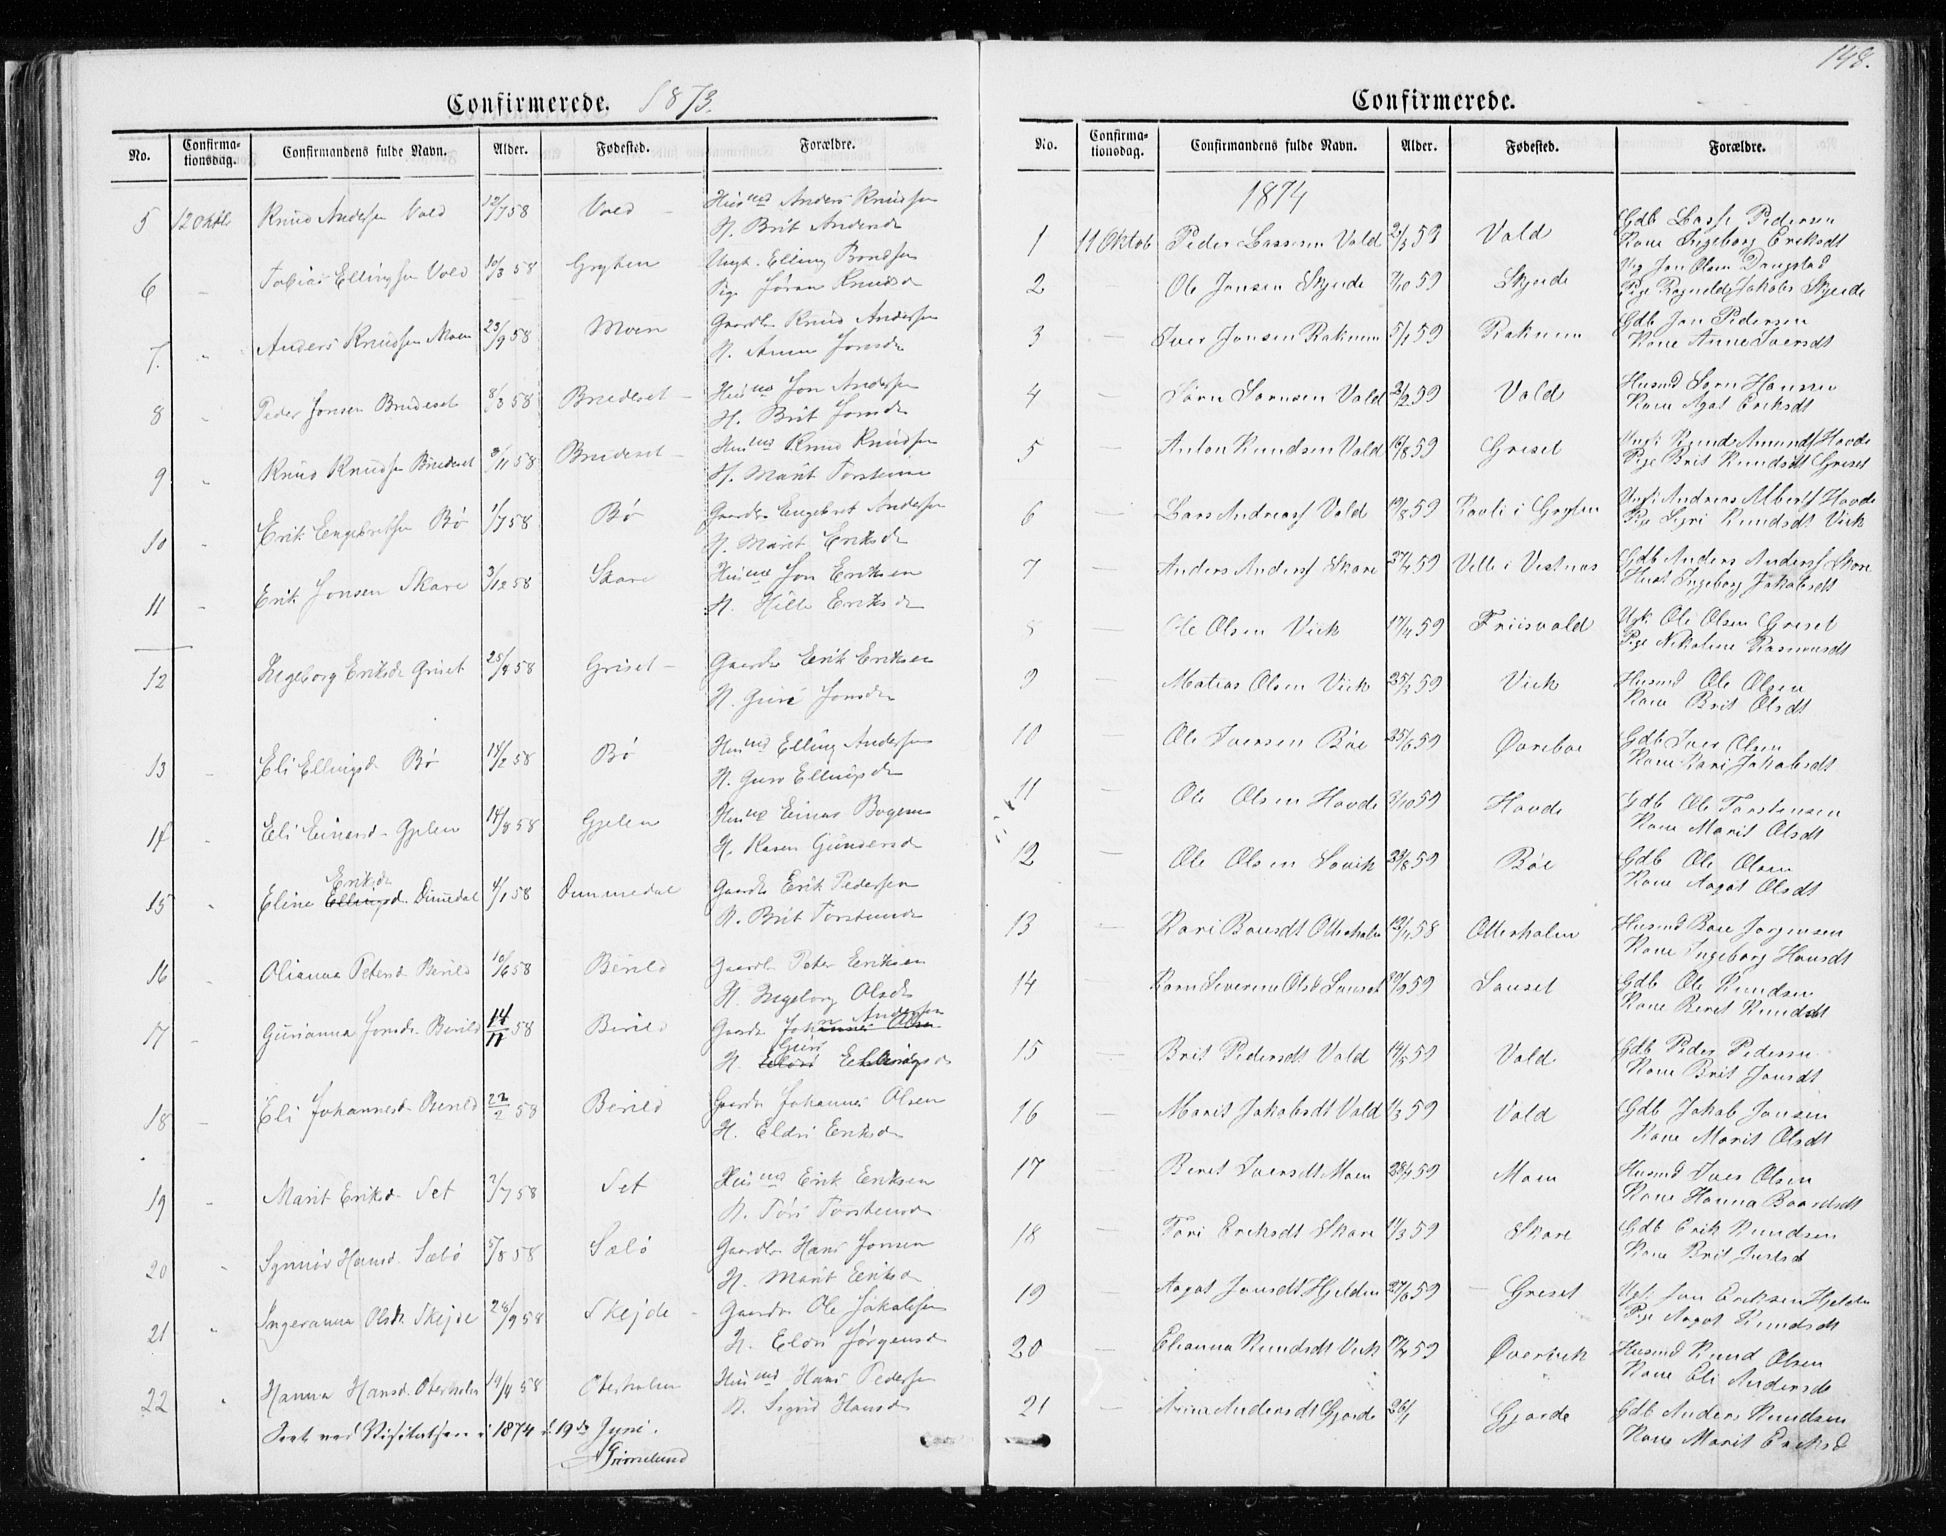 Confirmerede. 1873.
No. Confirmationsdag. Confirmandens fulde Navn. Alder. Fødested. Forældre.
5 12 Oktb Knud Andersen Vold 12/7 58 Vold Husmd Anders Knudsen
K. Brit Andersd
6 Tobias Ellingsen Vold 10/3 58 Gryten Ungk. Elling
Pige Jøran Knudsd
7. Anders Knudsen Moen 23/9 58 Moen Gaardbr Knud Andersen
K. Anne Jonsd
8 Peder Jonsen Brudeset 8/3 58 Brudeset Husmd Jon Andersen
K. Brit Jonsd
9 Knud Knudsen Brudeset 3/11 58 Brudeset Husmd Knud Knudsen
K. Marit Torstensd
10 Erik Engebretsen Bø 1/7 58 Bø Gaardbr Engebret Andersen
K. Marit Eriksd
11 Erik Jonsen Skare 3/12 58 Skare Husmd Jon Eriksen
K. Hille Eriksd
12 Ingeborg Eriksd Griset 25/4 58 Griset Gaardbr Erik Eriksen
K. Guri Jonsd
13 Eli Ellingsd Bø 14/2 58 Bø Husmd Elling Andersen
K. Guro Ellingsd
14 Eli Einarsd Gjelen 14/8 58 Gjelen Husmd Einar
K. Karen Gundersd
Eriksd
15 Eline Ellingsd. Dimedal 4/1 58 Dimmedal Gaardbr Erik Pedersen
K. Brit Torstensd
16 Olianna Petersd Berild 10/6 58 Berild Gaardbr Peter Eriksen
K. Ingeborg Olsd
n Andersen
17 Gurianna Jonsd Berild 14/11 58 Berild Gaardbr Johannes Olsen
Guri
K. Eldri Ellingsd
18 Eli Johannesd Berild 22/2 58 Berild Gaardbr Johannes Olsen
K. Eldri Eriksd
19 Marit Eriksd Set 3/7 58 Set Husmd Erik Eriksen
K. Tøri Torstensd
20 Synnøv Hansd. Sæbø 5/8 58 Sæbø Gaardbr Hans Jonsen
K. Marit Eriksd
21 Ingeranna Olsd. Skejde 28/9 58 Skejde Gaardbr Ole Jakobsen
K. Eldri Jørgensd
22 Hanna Hansd. Oterholm 19/4 58 Oterholen Husmd Hans Pedersen
K. Sigrid Hansd
Seet ved Visitatsen i 1874 d. 19de Juni.
Grimelund
148.
Confirmerede.
No. Confirmationsdag. Confirmandens fulde Navn. Alder. Fødested. Forældre.
1874
1 11 Oktob Peder Lassesen Vold 2/3 59 Vold Gdb Lasse Pedersen
Kone Ingeborg Eriksdt
2 Ole Jonsen Skjeide 7/10 59 Skjeide Ugk Jon Olsen Dangstad
Pige Ragnilde Jakobs Skjeide
3 Iver Jonsen Raknem 5/1 59 Raknem Gdb Jon Pedersen
Kone Anne Iversdt
4 Sørn Sørnsen Vold 2/2 59 Vold Husmd Sørn Hansen
Kone Agat Eriksdt
5 Anton Knudsen Vold 16/8 59 Greset Ungk Knud Amunds Hovde
Pige Brit Knudsdt Greset
6 Lars Andreass Vold 19/8 59 Kavli i Gryten Ungk Andreas Alberts Hovde
Pige Sigri Knudsdt Vik
7 Anders Anders Skare 27/4 59 Velle i Vestnæs Gdb Anders Anders Skare
Hust Ingeborg Jakobsdt
8 Ole Olsen Viik 17/4 59 Friisvold Ugk Ole Olsen Greset
Pige Nikoline Rasmusdt
9 Matias Olsen Viik 25/2 59 Viik Husmd Ole Olsen
Kone Brit Olsdt
10 Ole Iversen Bøe 25/6 59 Øvreboe Gdb Iver Olsen
Kone Kari Jakobsdt
11 Ole Olsen Hovde 3/10 59 Hovde Gdb Ole Torstensen
Kone Marit Olsdt
12 Ole Olsen Sovik 23/8 59 Bøe Gdb Ole Olsen
Kone Aagot Olsdt
13 Kari Boesdt Otterholm 12/4 58 Otterholm Husmd Boe Jørgensen
Kone Ingeborg Hansdt
14 Karn Severine Olsd Sauset 20/9 59 Sauset Gdb Ole Knudsen
Kone Beret Knudsdt
15 Brit Pedersdt Vold 14/5 59 Vold Gdb Peder Pedersen
Kone Brit Jonsdt
16 Marit Jakobsdt Vold 1/3 59 Vold Gdb Jakob Jonsen
Kone Marit Olsdt
17 Beret Iversdt Moen 28/4 59 Moen Husmd Iver Olsen
Kone Hanna Baardsdt
18 Tøri Eriksdt Skare 11/3 59 Skare Gdb Erik Knudsen
Kone Brit
19 Aagot Jonsdt Hjelden 27/6 59 Greset Ugk. Jon Eriksen Hjelden
Pige Aagot Knudsdt
20 Elianna Knudsdt Viik 17/4 59 Øverviik Husmd Knud Olsen
Kone Eli Andersd
21 Anna Andersdt Gjerde 26/1 Gjerde Gdb Anders Knudsen
Kone Marit Eriksd